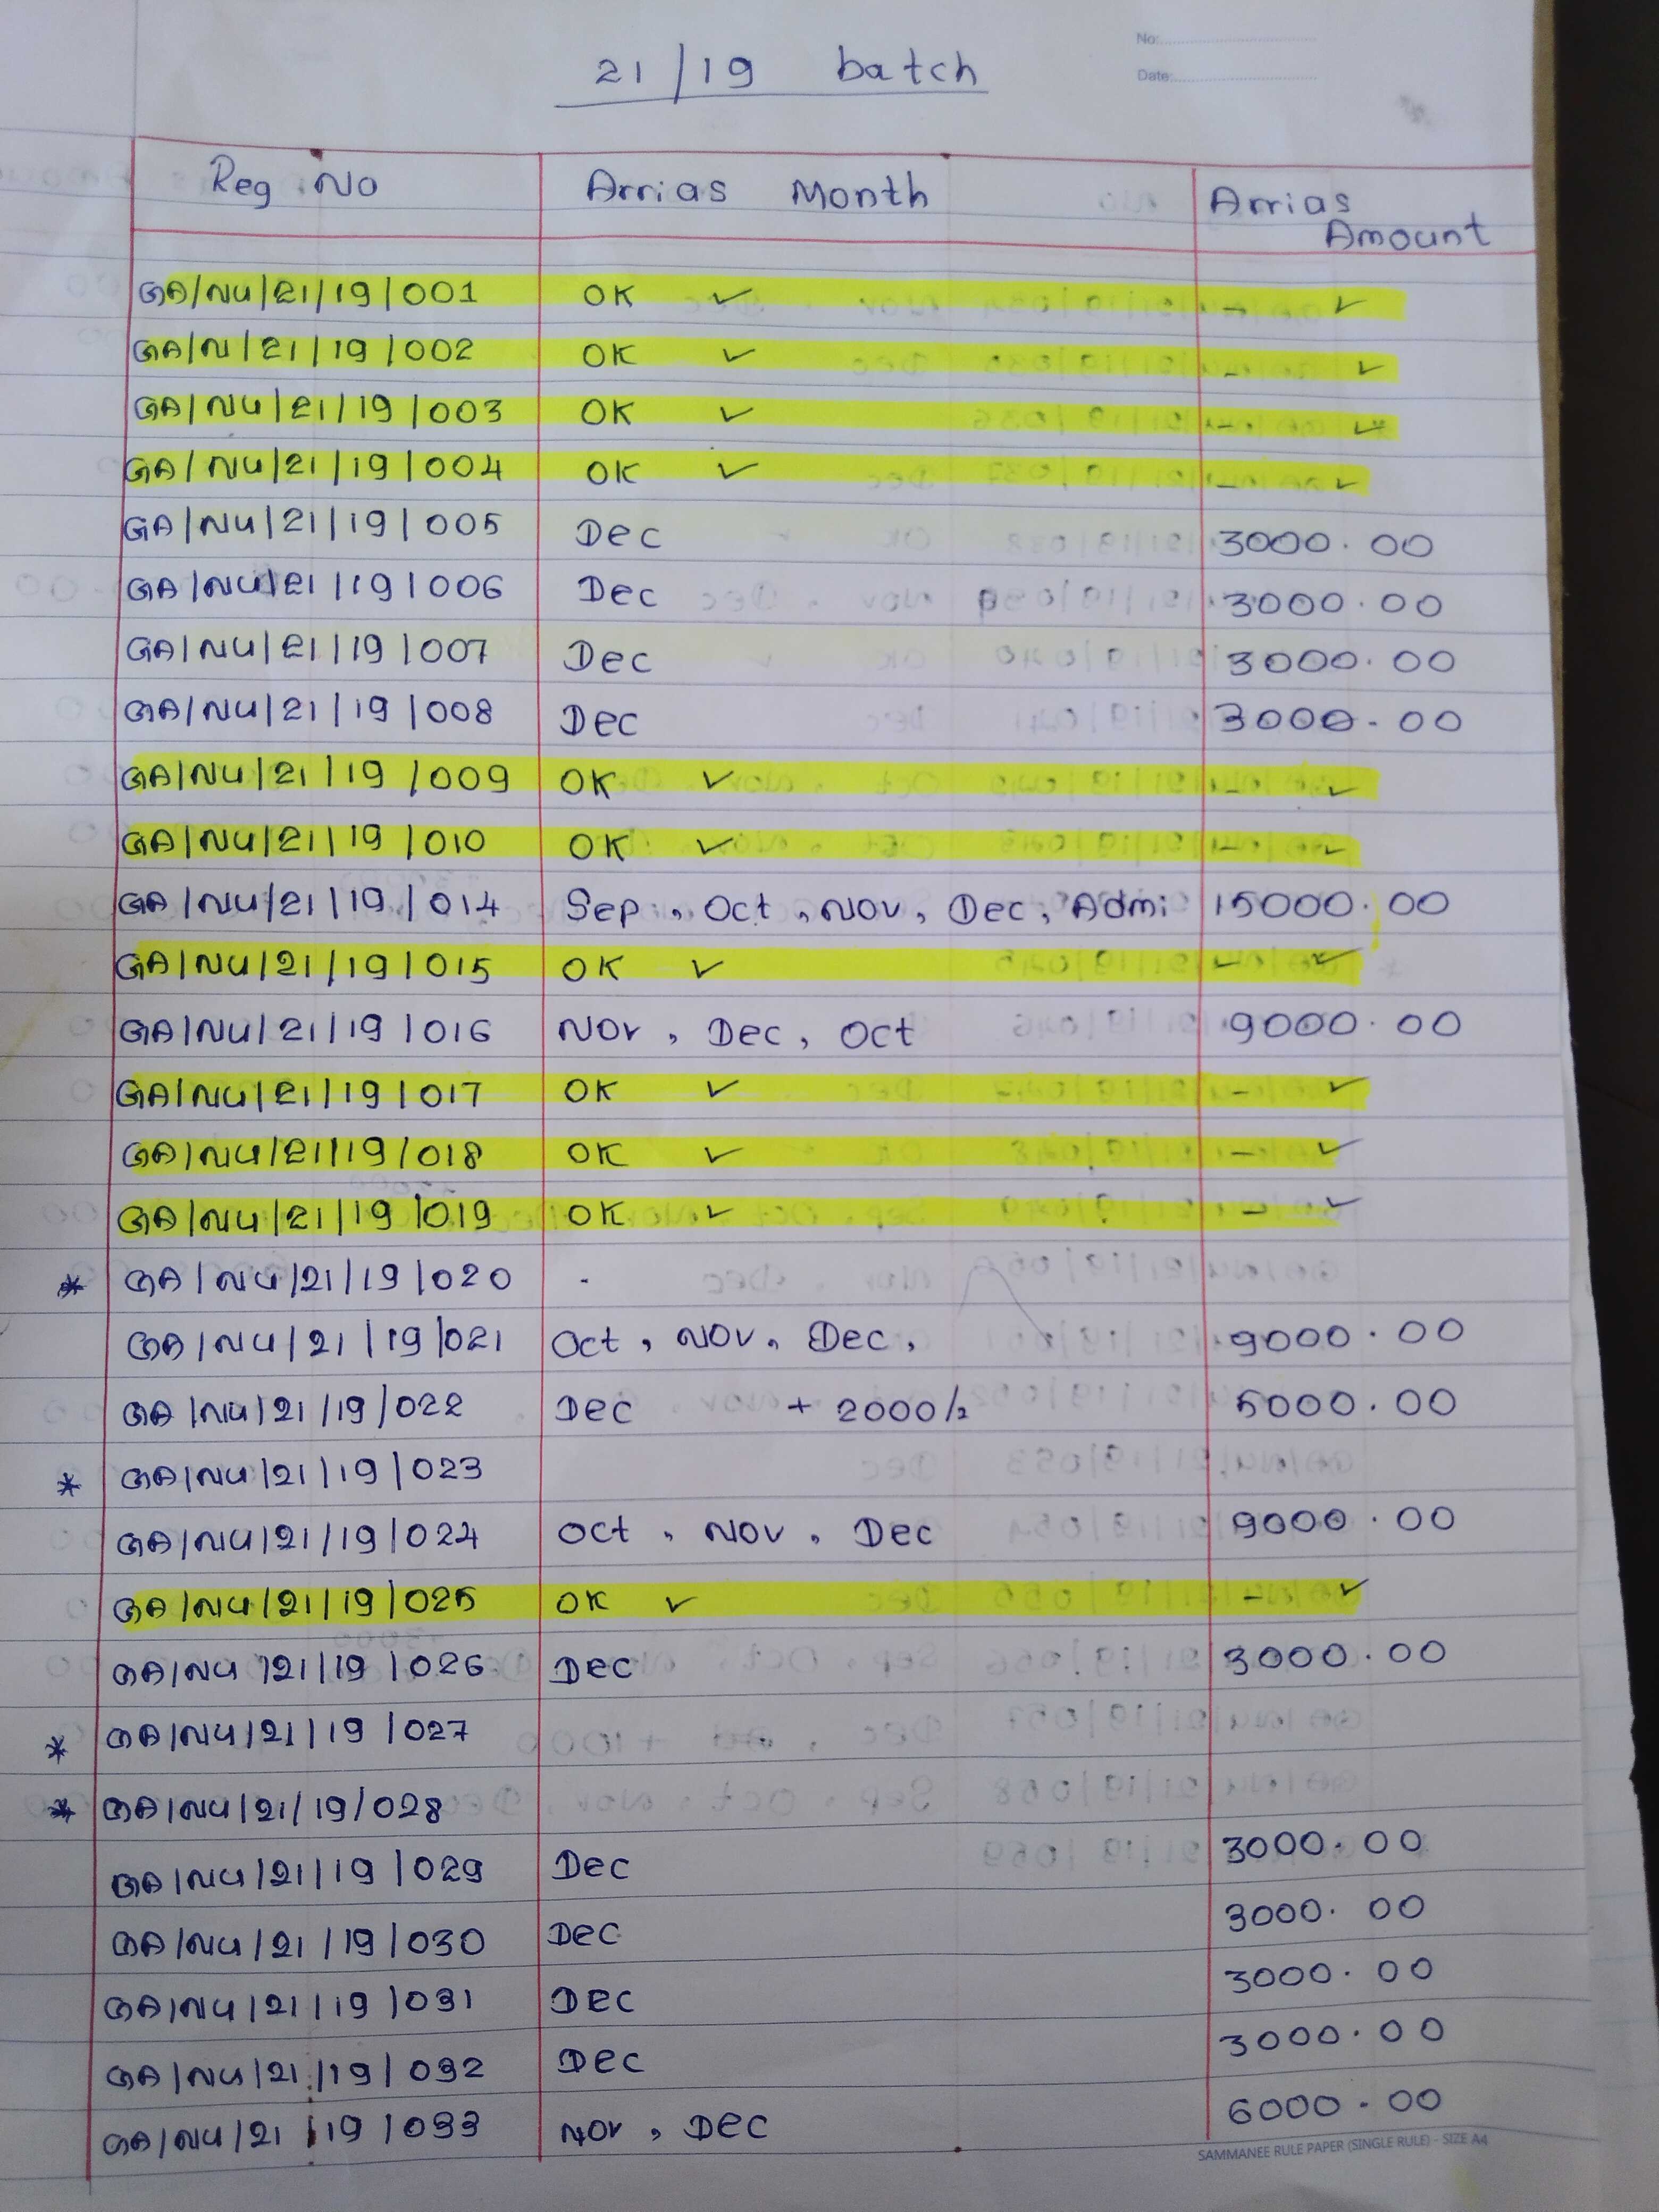 No:
Date:
21/19 batch
Reg No Arrias Month Arrias Amount
GA/NU/21/19/001 OK ✓ - ✓
GA/N/21/19/002 OK ✓ - ✓
GA/NU/21/19/003 OK ✓ - ✓
GA/NU/21/19/004 OK ✓ - ✓
GA/NU/21/19/005 Dec 3000.00
GA/NU/21/19/006 Dec 3000.00
GA/NU/21/19/007 Dec 3000.00
GA/NU/21/19/008 Dec 3000-00
GA/NU/21/19/009 OK ✓ - ✓
GA/NU/21/19/010 OK ✓ - ✓
GA/NU/21/19/014 Sep, Oct, Nov, Dec, Admi 15000.00
GA/NU/21/19/015 OK ✓ - ✓
GA/NU/21/19/016 Nov, Dec, Oct 9000.00
GA/NU/21/19/017 OK ✓ - ✓
GA/NU/21/19/018 OK ✓ - ✓
GA/NU/21/19/019 OK ✓ - ✓
* GA/NU/21/19/020 -
GA/NU/21/19/021 Oct, Nov, Dec, 9000.00
GA/NU/21/19/022 Dec + 2000/= 5000.00
* GA/NU/21/19/023
GA/NU/21/19/024 Oct, Nov, Dec 9000.00
GA/NU/21/19/025 OK ✓ - ✓
GA/NU/21/19/026 Dec 3000.00
* GA/NU/21/19/027
* GA/NU/21/19/028
GA/NU/21/19/029 Dec 3000.00
GA/NU/21/19/030 Dec 3000.00
GA/NU/21/19/031 Dec 3000.00
GA/NU/21/19/032 Dec 3000.00
GA/NU/21/19/033 Nov, Dec 6000.00
SAMMANEE RULE PAPER (SINGLE RULE) - SIZE A4